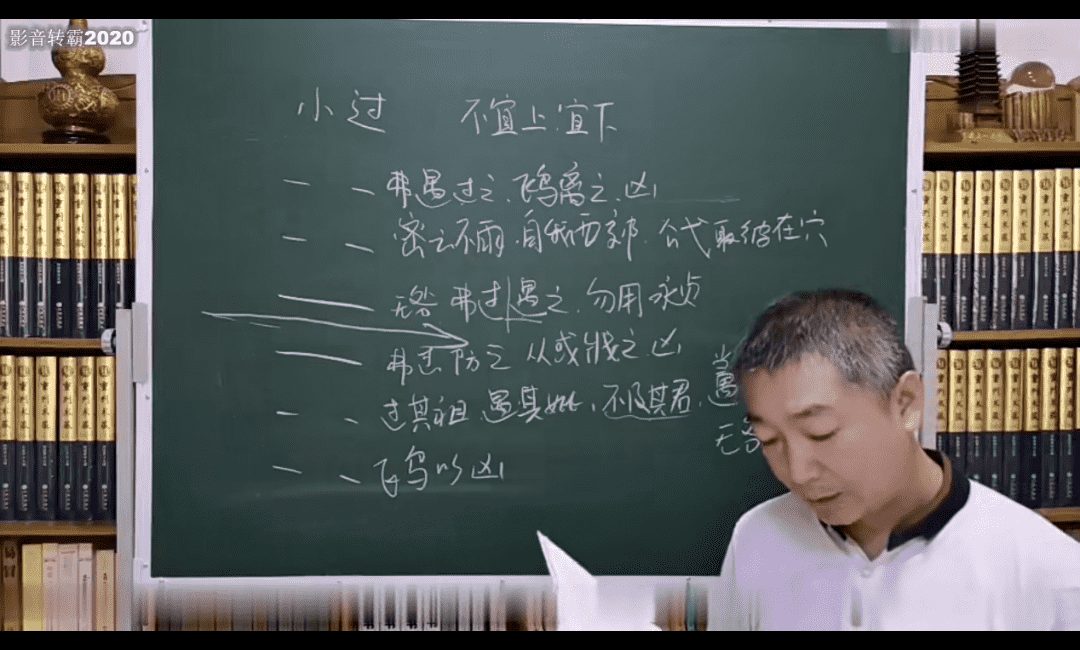 影音转霸2020
小过 不宜上宜下
弗遇过之.飞鸟离之.凶
密云不雨.自我西郊.公弋取彼在穴
无咎 弗过遇之.勿用永贞
弗过防之 从或戕之.凶
过其祖.遇其妣.不及其君.遇
无咎
飞鸟以凶